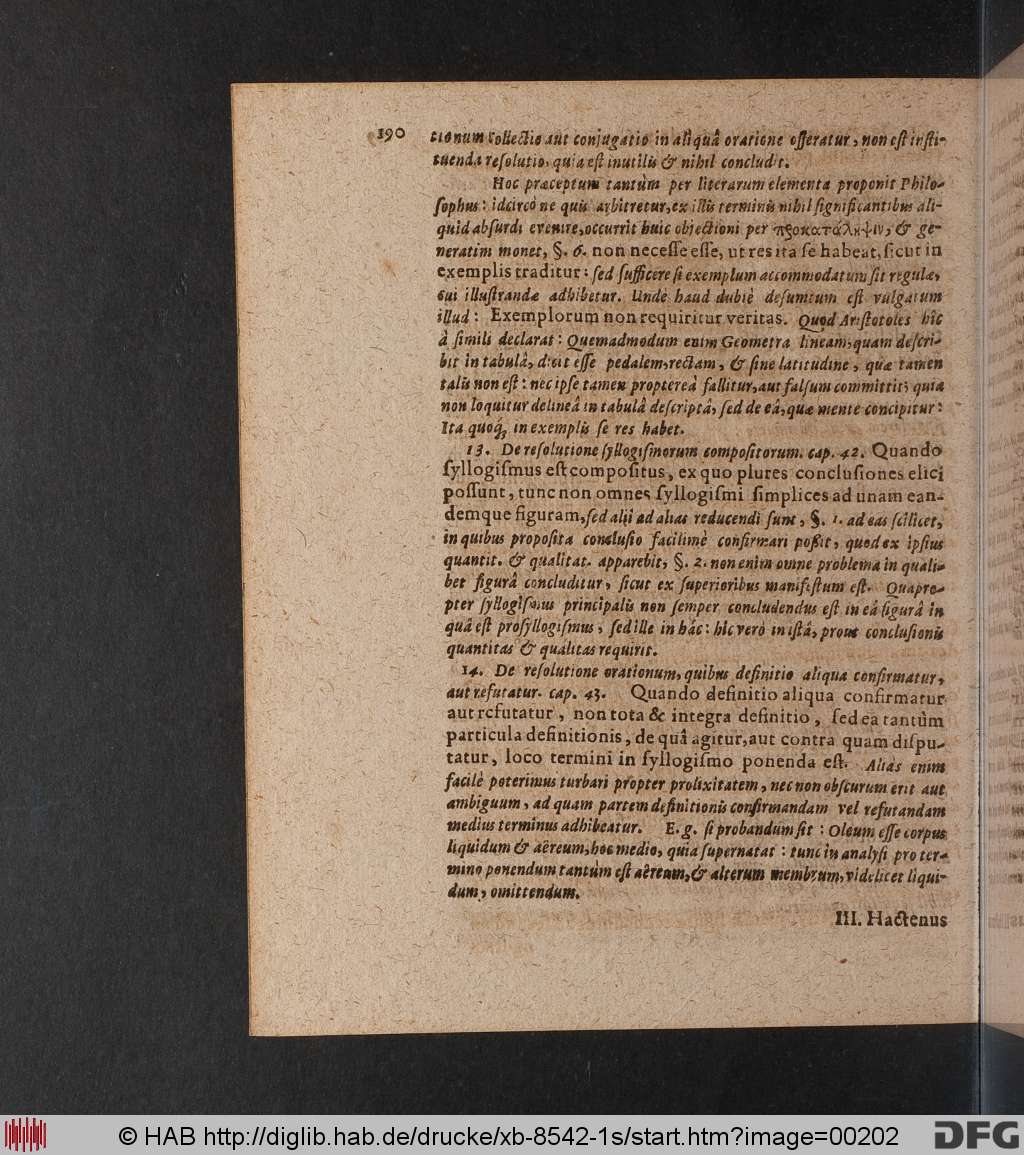 190
tionum collectio aut conjugatio in aliquâ oratione offeratur, non est insti-
tuenda resolutio, quia est inutilis & nihil concludit.
Hoc præceptum tantùm per literarum elementa proponit Philo-
sophus: idcircò ne quis arbitretur, ex illis terminis nihil significantibus ali-
quid absurdi evenire, occurrit huic objectioni per προκατάληψιν, & ge-
neratim monet, §. 6. non necesse esse, ut res ita se habeat, sicut in
exemplis traditur: sed sufficere si exemplum accommodatum sit regulæ,
cui illustrandæ adhibetur. Unde haud dubiè desumtum est vulgatum
illud: Exemplorum non requiritur veritas. Quod Aristoteles hîc
à simili declarat: Quemadmodum enim Geometra lineam, quam descri-
bit in tabulâ, dicit esse pedalem, rectam, & sine latitudine, quæ tamen
talis non est: nec ipse tamen propterea fallitur, aut falsum committit; quia
non loquitur de lineâ in tabulâ descriptâ, sed de eâ, quæ mente concipitur:
Ita quoq; in exemplis se res habet.
13. De resolutione syllogismorum compositorum. cap. 42. Quando
syllogismus est compositus, ex quo plures conclusiones elici
possunt, tunc non omnes syllogismi simplices ad unam ean-
demque figuram, sed alii ad alias reducendi sunt, §. 1. ad eas scilicet,
in quibus proposita conclusio facilimè confirmari poßit, quod ex ipsius
quantit. & qualitat. apparebit, §. 2. non enim omne problema in quali-
bet figurâ concluditur, sicut ex superioribus manifestum est. Quapro-
pter syllogismus principalis non semper concludendus est in eâ figurâ in
quâ est prosyllogismus, sed ille in hâc: hîc verò in istâ, prout conclusionis
quantitas & qualitas requirit.
14. De resolutione orationum, quibus definitio aliqua confirmatur,
aut refutatur. cap. 43. Quando definitio aliqua confirmatur
aut refutatur, non tota & integra definitio, sed ea tantùm
particula definitionis, de quâ agitur, aut contra quam dispu-
tatur, loco termini in syllogismo ponenda est. Alias enim
facilè poterimus turbari propter prolixitatem, nec non obscurum erit aut
ambiguum, ad quam partem definitionis confirmandam vel refutandam
medius terminus adhibeatur. E. g. si probandum sit: Oleum esse corpus
liquidum & aëreum, hoc medio, quia supernatat: tunc in analysi pro ter-
mino ponendum tantùm est aëreum, & alterum membrum, videlicet liqui-
dum, omittendum.
III. Hactenus
© HAB http://diglib.hab.de/drucke/xb-8542-1s/start.htm?image=00202
DFG